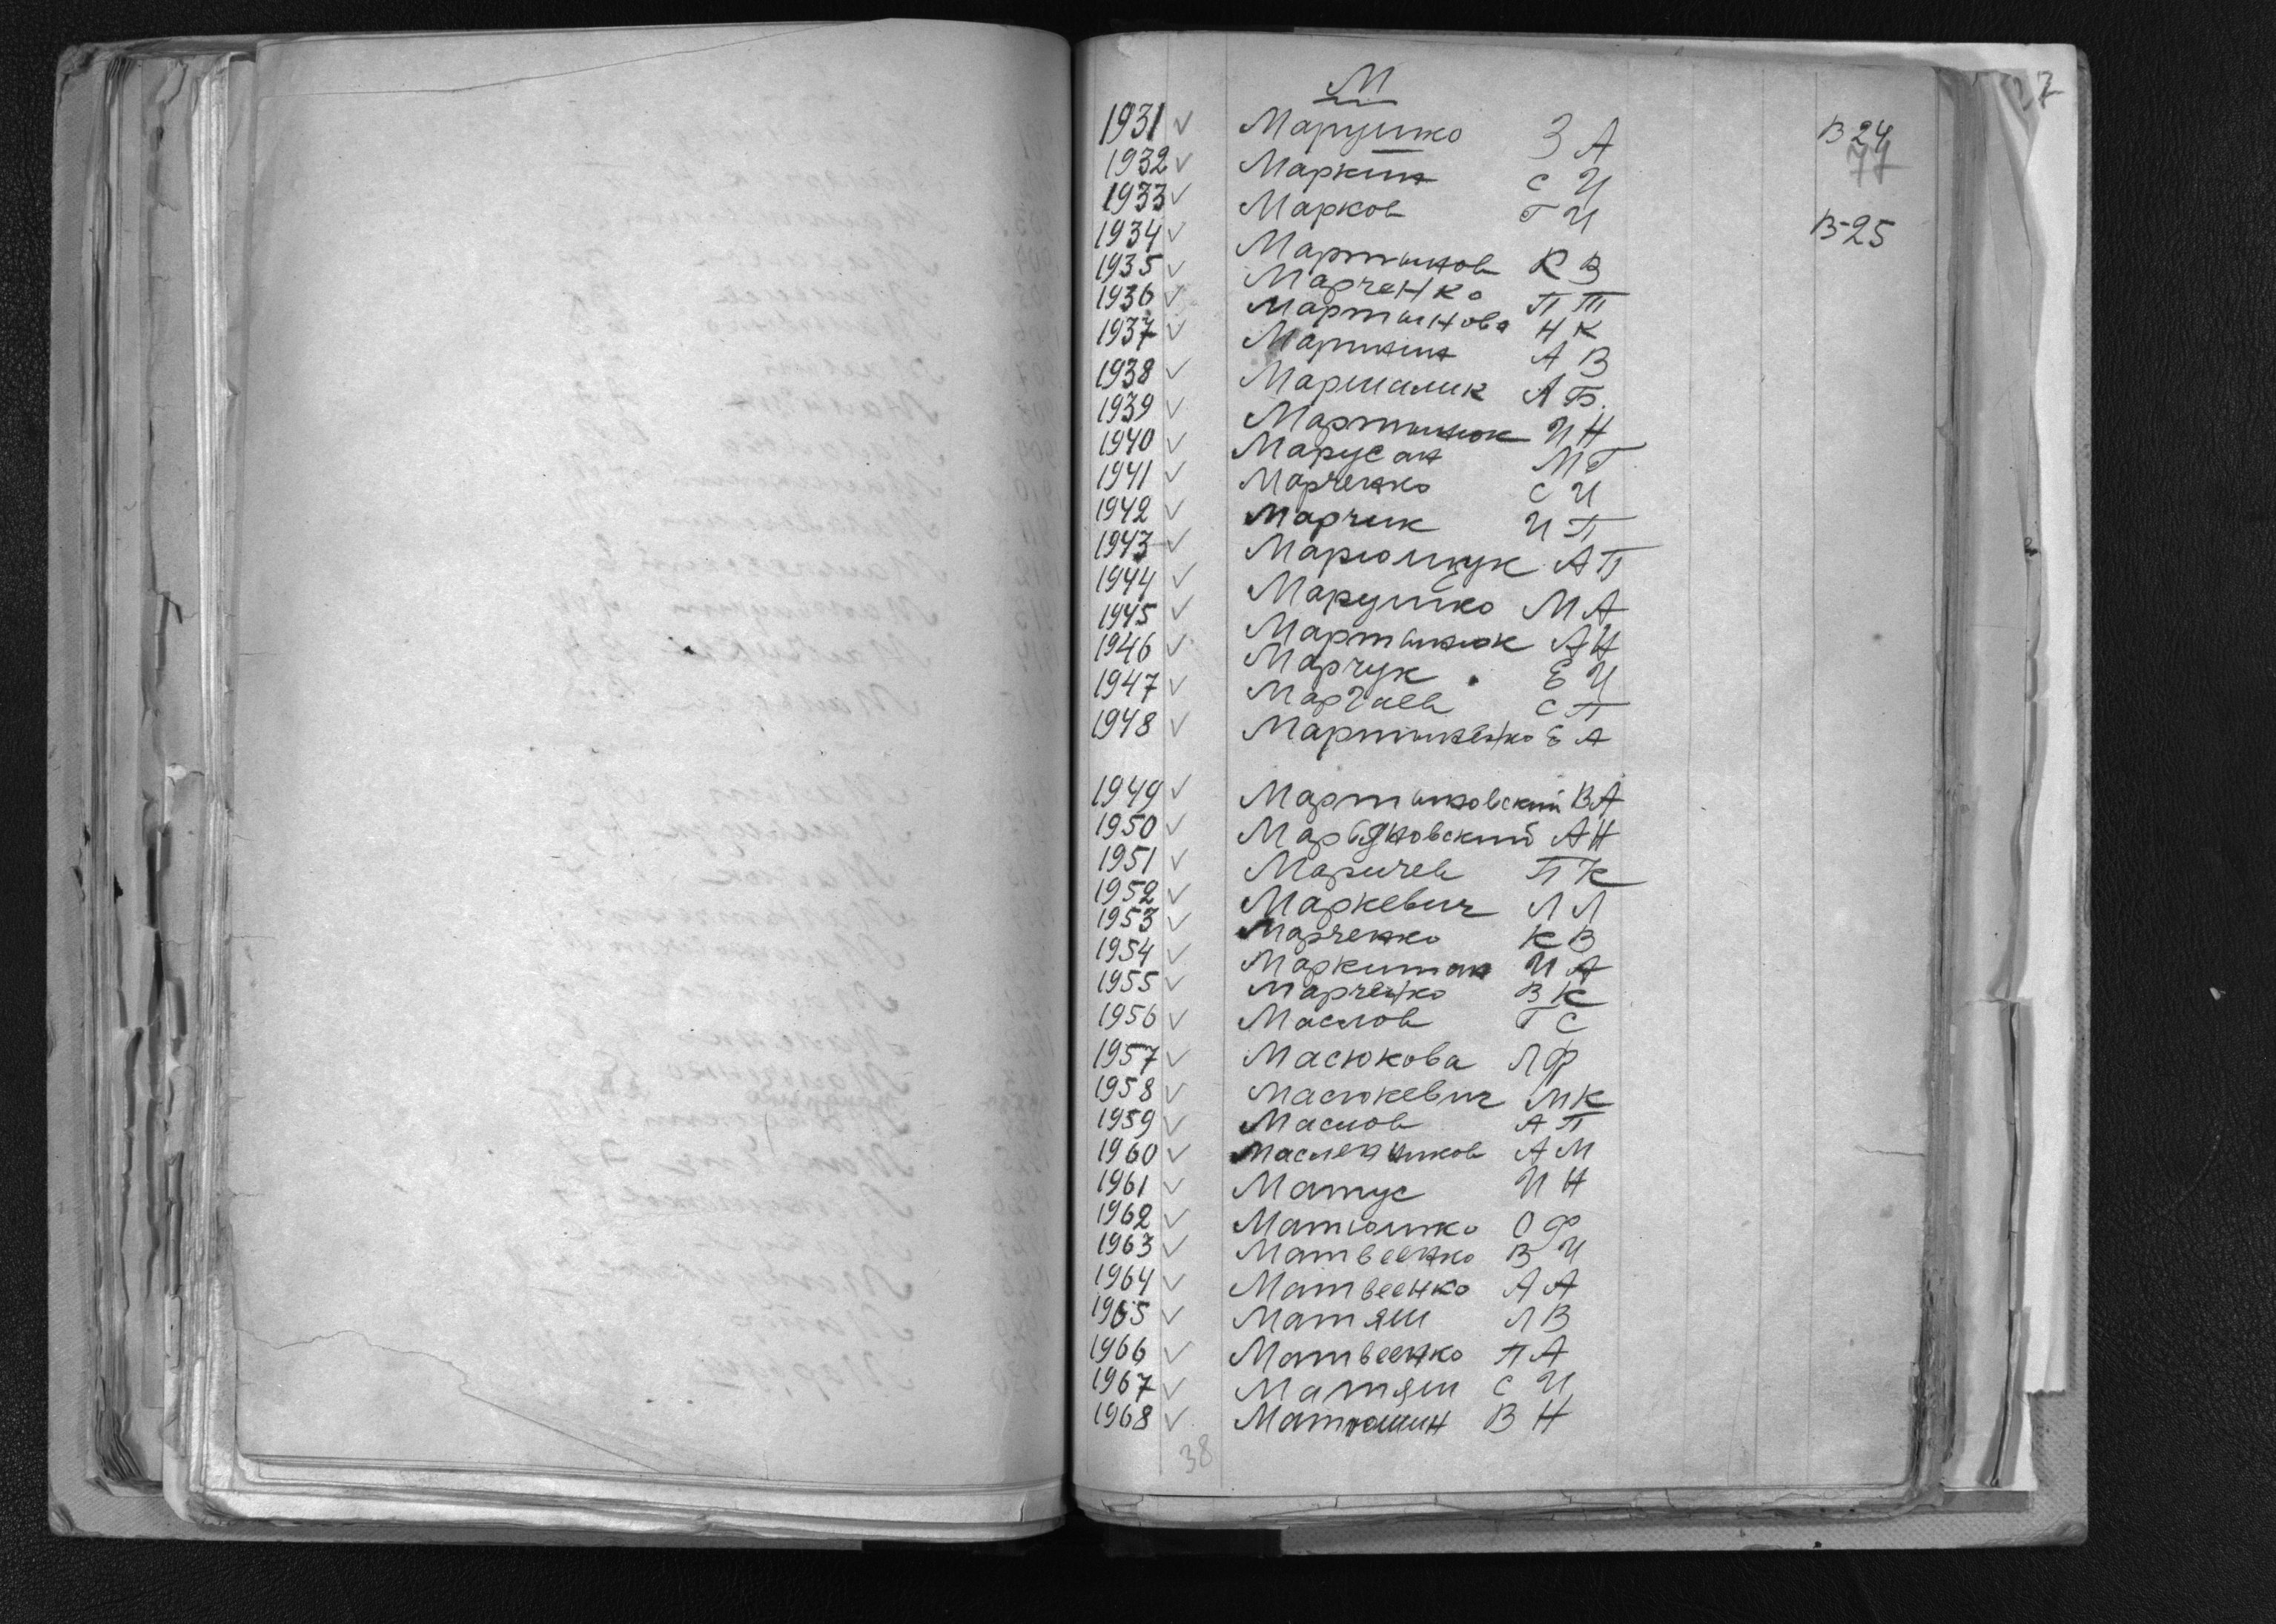 М
1931 ✓ Марушко З А В-24
77
1932 ✓ Маркин С И
1933 ✓ Марков Г И В-25
1934 ✓ Мартынов К В
1935 ✓ Марченко П Т
1936 ✓ Мартынова Н К
1937 ✓ Маринин А В
1938 ✓ Маршалик А Б.
1939 ✓ Мартынюк И Н
1940 ✓ Марусан М Г
1941 ✓ Марченко С И
1942 ✓ Марчик И П
1943 ✓ Марющук А П
1944 ✓ Марушко М А
1945 ✓ Мартынюк А Н
1946 ✓ Марчук Е И
1947 ✓ С П
1948 ✓ Мартыненко Е А
1949 ✓ Мартыновский В А
1950 ✓ Марьяновский А Н
1951 ✓ Маричев П К
1952 ✓ Маркевич Л Л
1953 ✓ Марченко К В
1954 ✓ Маркитан И А
1955 ✓ Марченко В К
1956 ✓ Маслов Г С
1957 ✓ Масюкова Л Ф
1958 ✓ Масюкевич М К
1959 ✓ Маслов А П
1960 ✓ Масленников А М
1961 ✓ Матус И Н
1962 ✓ Матюшко О Ф
1963 ✓ Матвеенко В И
1964 ✓ Матвеенко А А
1965 ✓ Матяш Л В
1966 ✓ Матвеенко П А
1967 ✓ Матяш С И
1968 ✓ Матюшин В Н
38